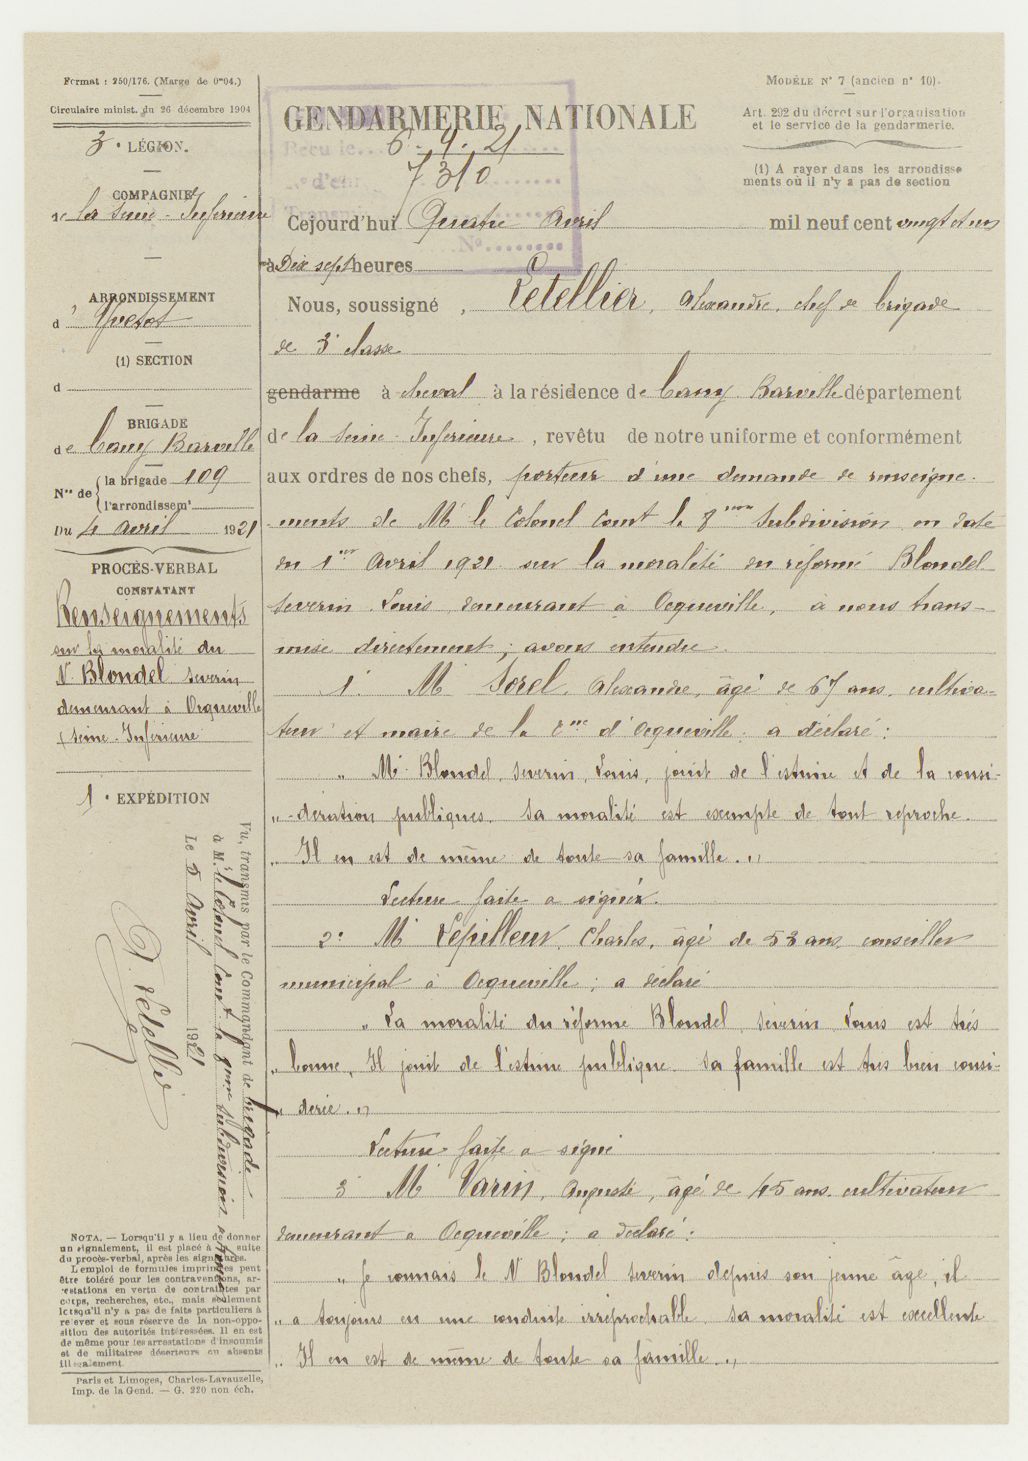 Format : 250/176. (Marge de 0m04.)
Circulaire minist. du 26 décembre 1904
3e LÉGION.
COMPAGNIE
de la Seine-Inférieure
ARRONDISSEMENT
d' Yvetot
(1) SECTION
d
BRIGADE
de Cany Barville
Nos de
la brigade 109
l'arrondissemt
Du 4 avril 1921
PROCÈS-VERBAL
CONSTATANT
Renseignements
sur la moralité du
N. Blondel severin
demeurant à Ocqueville
(Seine-Inférieure
1e EXPÉDITION
Vu, transmis par le Commandant de brigade
à M. le Colonel Comt la 8eme subdivision à
Le 5 Avril 1921
A. Letellier
NOTA. — Lorsqu'il y a lieu de donner
un signalement, il est placé à la suite
du procès-verbal, après les signatures.
L'emploi de formules imprimées peut
être toléré pour les contraventions, ar-
restations en vertu de contraintes par
corps, recherches, etc., mais seulement
lorsqu'il n'y a pas de faits particuliers à
relever et sous réserve de la non-oppo-
sition des autorités intéressées. Il en est
de même pour les arrestations d'insoumis
et de militaires déserteurs ou absents
illégalement.
Paris et Limoges, Charles-Lavauzelle,
Imp. de la Gend. — G. 220 non éch.
MODÈLE N° 7 (ancien n° 10).
Art. 292 du décret sur l'organisation
et le service de la gendarmerie.
(1) A rayer dans les arrondisse
ments où il n'y a pas de section
GENDARMERIE NATIONALE
Reçu le... 6-4-21
N° d'en
7310
N°
Cejourd'hui Quatre Avril mil neuf cent vingt et un
à Dix sept heures
Nous, soussigné, Letellier, alexandre, chef de brigade
de 3e classe
gendarme à cheval à la résidence de Cany Barville département
de la Seine-Inférieure, revêtu de notre uniforme et conformément
aux ordres de nos chefs, porteur d'une demande de renseigne-
-ments de Mr le Colonel Comt la 8eme Subdivision en date
du 1er Avril 1921 sur la moralité du réformé Blondel
severin Louis, demeurant à Ocqueville, à nous trans-
mise directement, avons entendu.
1° Mr Sorel, alexandre, âgé de 67 ans, cultiva-
teur et maire de la Cne d'Ocqueville, a déclaré :
" Mr Blondel, severin, Louis, jouit de l'estime et de la consi-
"-dération publiques. sa moralité est exempte de tout reproche.
" Il en est de même de toute sa famille. "
Lecture faite a signé.
2° Mr Lepilleur, Charles, âgé de 53 ans, conseiller
municipal à Ocqueville ; a déclaré
" La moralité du réformé Blondel, severin Louis est très
" bonne, Il jouit de l'estime publique. sa famille est très bien consi-
" dérée. "
Lecture faite a signé
3° Mr Varin, Auguste, âgé de 45 ans, cultivateur
demeurant à Ocqueville ; a déclaré :
" Je connais le N. Blondel severin depuis son jeune âge, il
" a toujours eu une conduite irréprochable. sa moralité est excellente
" Il en est de même de toute sa famille. "